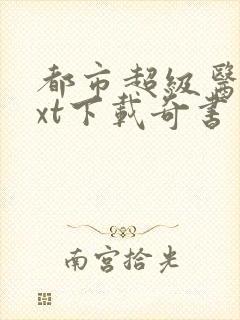 都市超级醫
xt下載奇書
南宫拾光